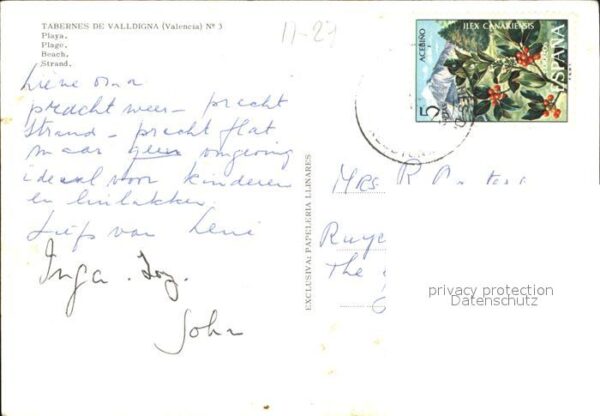 TABERNES DE VALLDIGNA (Valencia) Nº 3
Playa.
Plage.
Beach.
Strand.
11-29
ACEBIÑO
ILEX CANARIENSIS
5
PTAS
ESPAÑA
F.N.M.T.
Lieve oma
pracht weer - pracht
strand - pracht flat
maar geen omgeving
ideaal voor kinderen
en luilakken
Liefs van Leni
Inga. Joz.
John
EXCLUSIVA: PAPELERIA LLINARES
Mrs R
The
privacy protection
Datenschutz